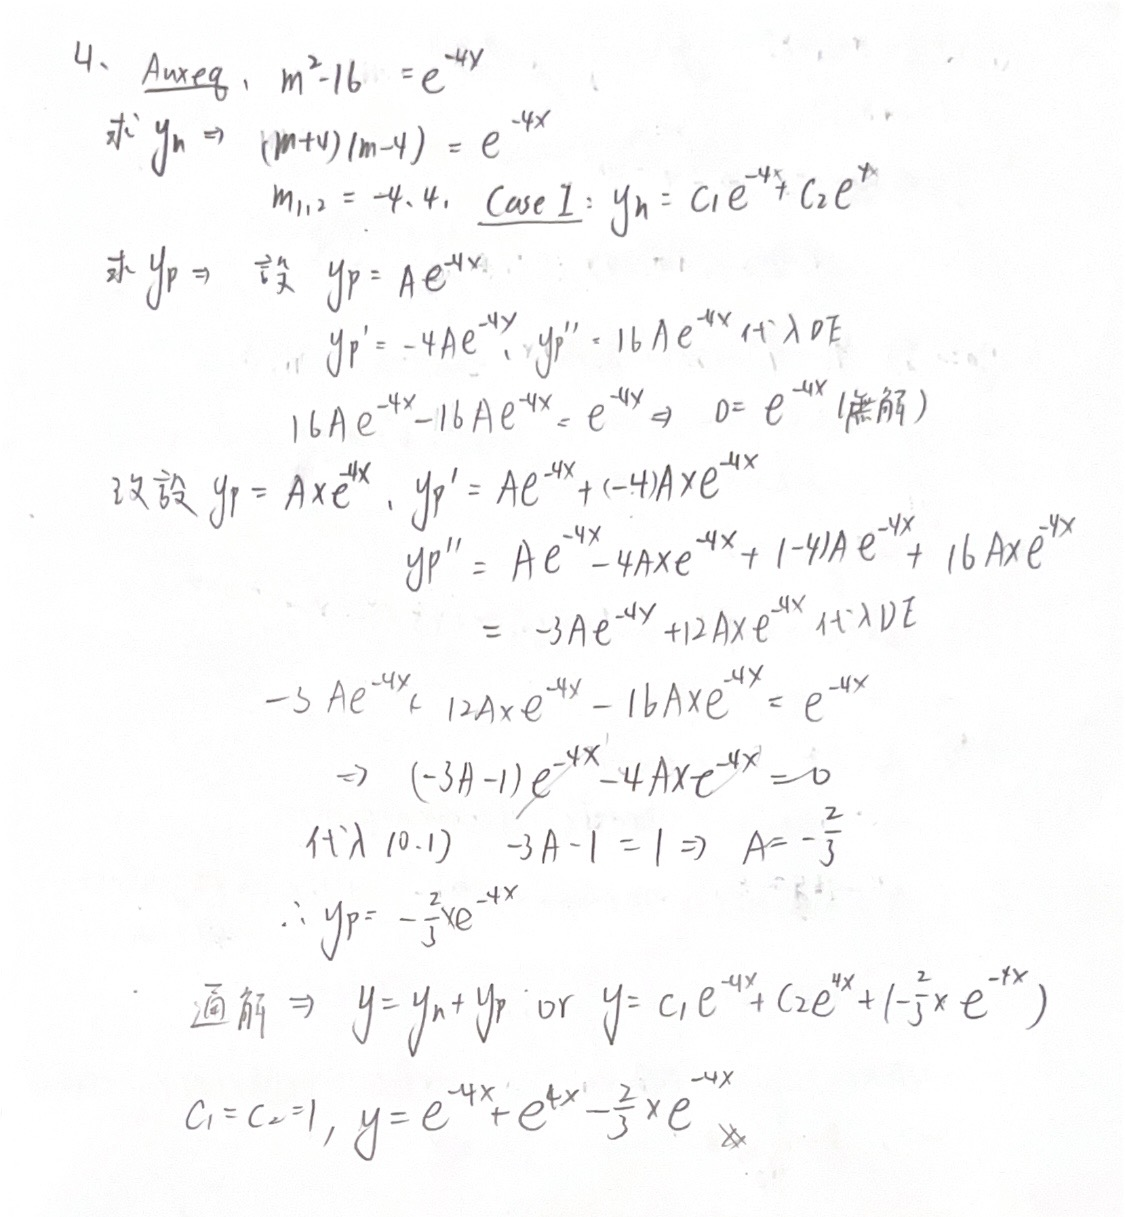 4、 Aux eq、 m²-16 = e^-4x
求 yh ⇒ (m+4)(m-4) = e^-4x
m1,2 = -4、4、 Case I : yh = c1e^-4x + c2e^4x
求 yp ⇒ 設 yp = Ae^-4x
yp' = -4Ae^-4x、 yp'' = 16Ae^-4x 代入DE
16Ae^-4x - 16Ae^-4x = e^-4x ⇒ 0 = e^-4x (無解)
改設 yp = Axe^-4x、 yp' = Ae^-4x + (-4)Axe^-4x
yp'' = Ae^-4x - 4Axe^-4x + (-4)Ae^-4x + 16Axe^-4x
= -3Ae^-4x + 12Axe^-4x 代入DE
-3Ae^-4x + 12Axe^-4x - 16Axe^-4x = e^-4x
⇒ (-3A-1)e^-4x - 4Axe^-4x = 0
代入 (0.1) -3A-1 = 1 ⇒ A = -2/3
∴ yp = -2/3xe^-4x
通解 ⇒ y = yh + yp or y = c1e^-4x + c2e^4x + (-2/3x e^-4x)
c1 = c2 = 1, y = e^-4x + e^4x - 2/3xe^-4x